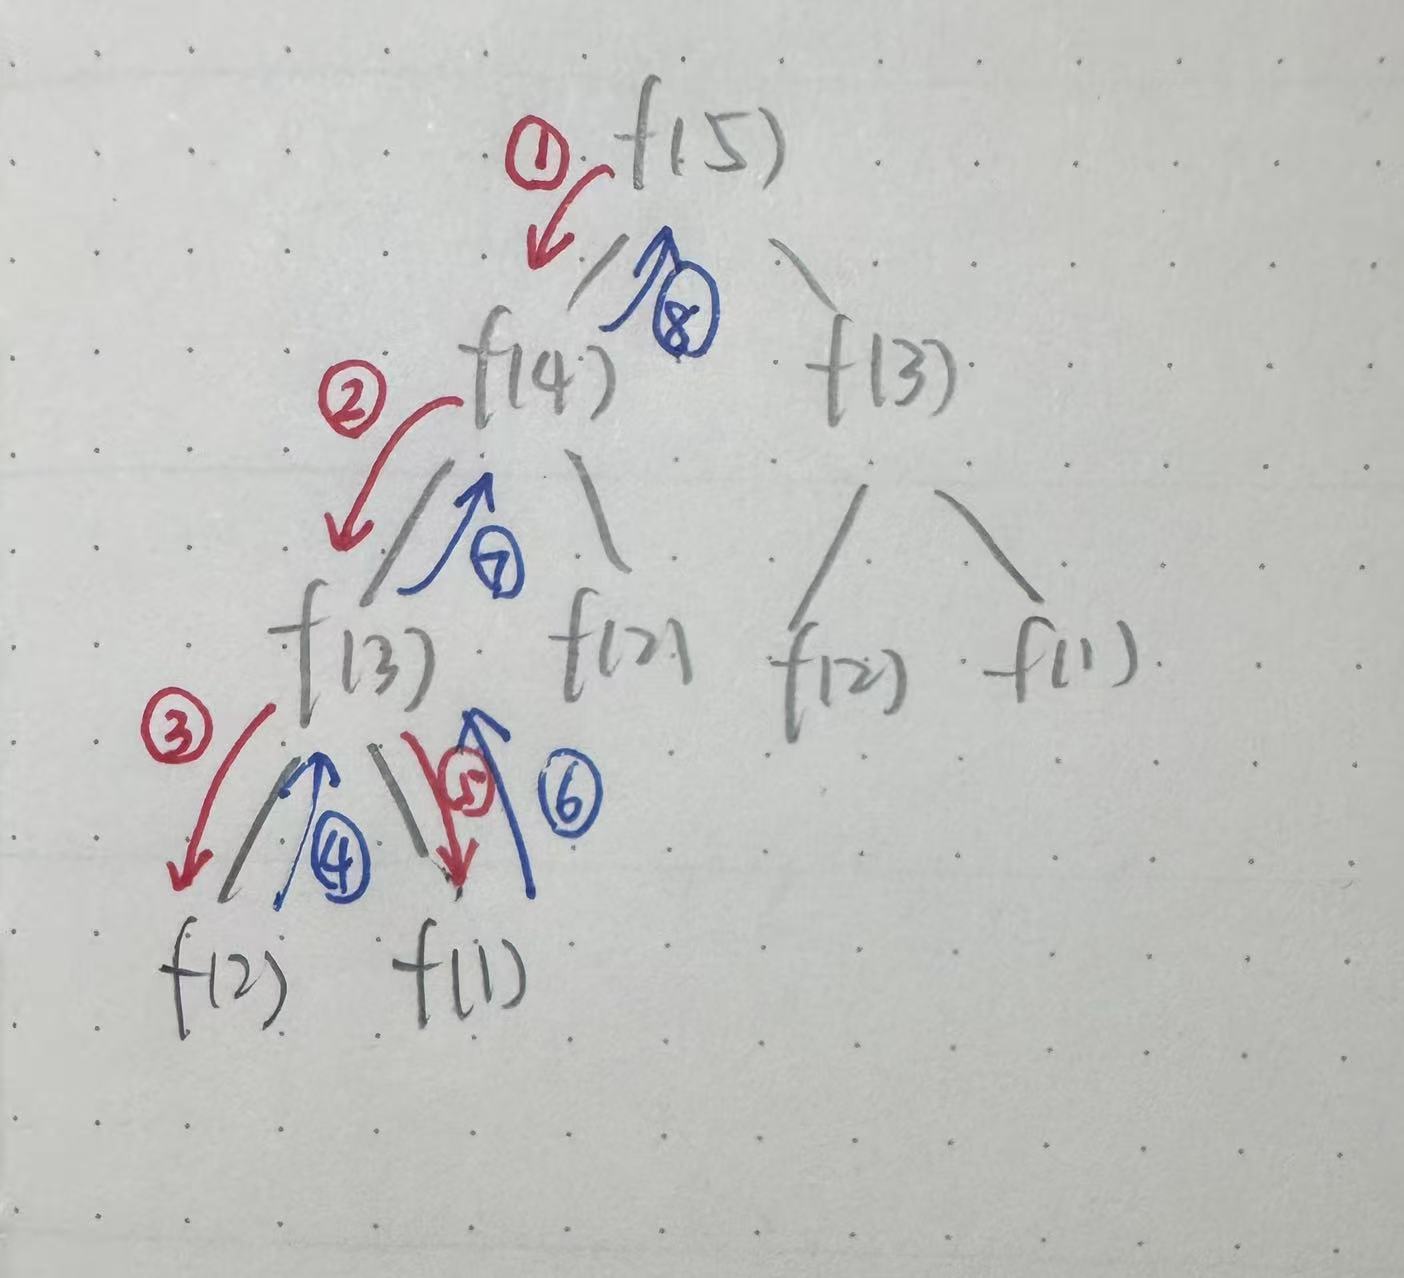 ① f(5)
⑧
② f(4) f(3)
⑦
f(3) f(2) f(2) f(1)
③ ⑤ ⑥
④
f(2) f(1)